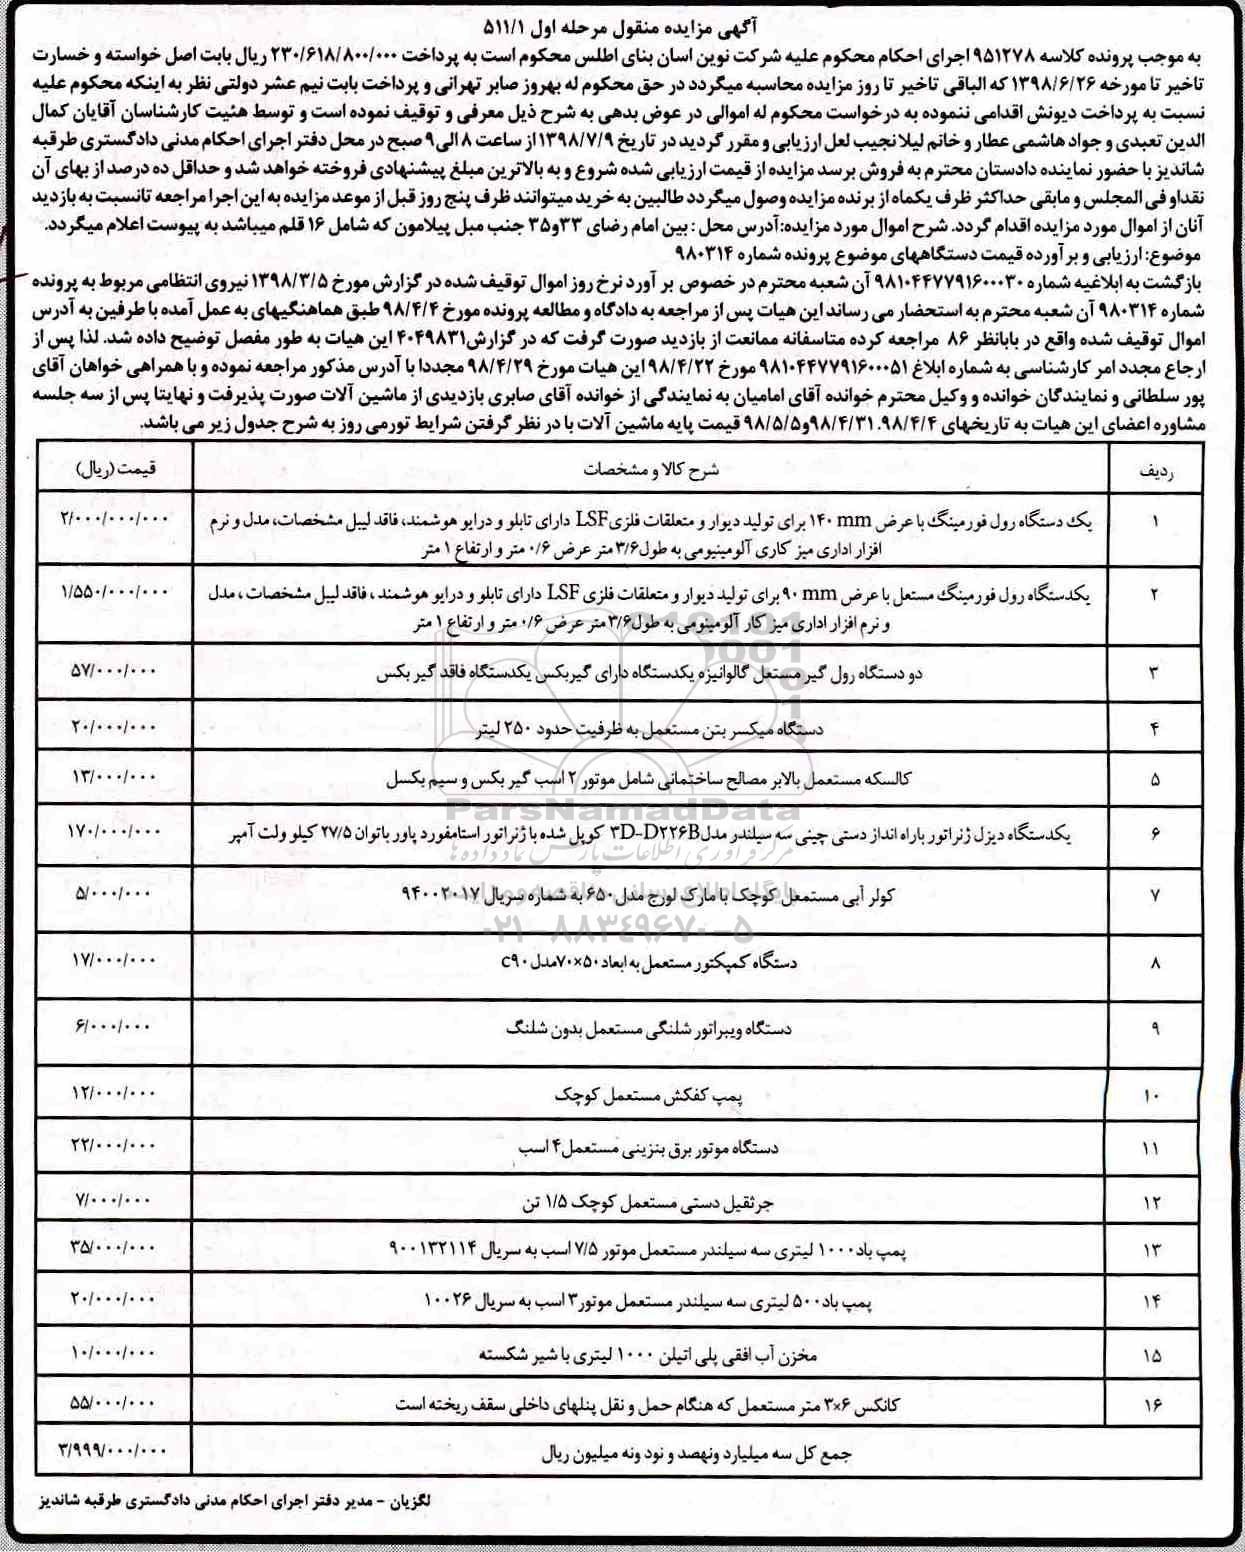 آگهی مزایده منقول مرحله اول ۵۱۱/۱
به موجب پرونده کلاسه ۹۵۱۲۷۸ اجرای احکام محکوم علیه شرکت نوین اسان بنای اطلس محکوم است به پرداخت ۲۳۰/۶۱۸/۸۰۰/۰۰۰ ریال بابت اصل خواسته و خسارت
تاخیر تا مورخه ۱۳۹۸/۶/۲۶ که الباقی تاخیر تا روز مزایده محاسبه میگردد در حق محکوم له بهروز صابر تهرانی و پرداخت بابت نیم عشر دولتی نظر به اینکه محکوم علیه
نسبت به پرداخت دیونش اقدامی ننموده به درخواست محکوم له اموالی در عوض بدهی به شرح ذیل معرفی و توقیف نموده است و توسط هئیت کارشناسان آقایان کمال
الدین تعبدی و جواد هاشمی عطار و خانم لیلا نجیب لعل ارزیابی و مقرر گردید در تاریخ ۱۳۹۸/۷/۹ از ساعت ۸ الی ۹ صبح در محل دفتر اجرای احکام مدنی دادگستری طرقبه
شاندیز با حضور نماینده دادستان محترم به فروش برسد مزایده از قیمت ارزیابی شده شروع و به بالاترین مبلغ پیشنهادی فروخته خواهد شد و حداقل ده درصد از بهای آن
نقدا و فی المجلس و مابقی حداکثر ظرف یکماه از برنده مزایده وصول میگردد طالبین به خرید میتوانند ظرف پنج روز قبل از موعد مزایده به این اجرا مراجعه تا نسبت به بازدید
آنان از اموال مورد مزایده اقدام گردد. شرح اموال مورد مزایده:آدرس محل : بین امام رضای ۳۳و۳۵ جنب مبل پیلامون که شامل ۱۶ قلم میباشد به پیوست اعلام میگردد.
موضوع: ارزیابی و برآورده قیمت دستگاههای موضوع پرونده شماره ۹۸۰۳۱۴
بازگشت به ابلاغیه شماره ۹۸۱۰۴۴۷۷۹۱۶۰۰۰۳۰ آن شعبه محترم در خصوص بر آورد نرخ روز اموال توقیف شده در گزارش مورخ ۱۳۹۸/۳/۵ نیروی انتظامی مربوط به پرونده
شماره ۹۸۰۳۱۴ آن شعبه محترم به استحضار می رساند این هیات پس از مراجعه به دادگاه و مطالعه پرونده مورخ ۹۸/۴/۴ طبق هماهنگیهای به عمل آمده با طرفین به آدرس
اموال توقیف شده واقع در بابانظر ۸۶ مراجعه کرده متاسفانه ممانعت از بازدید صورت گرفت که در گزارش۴۰۴۹۸۳۱ این هیات به طور مفصل توضیح داده شد. لذا پس از
ارجاع مجدد امر کارشناسی به شماره ابلاغ ۹۸۱۰۴۴۷۷۹۱۶۰۰۰۵۱ مورخ ۹۸/۴/۲۲ این هیات مورخ ۹۸/۴/۲۹ مجددا با آدرس مذکور مراجعه نموده و با همراهی خواهان آقای
پور سلطانی و نمایندگان خوانده و وکیل محترم خوانده آقای امامیان به نمایندگی از خوانده آقای صابری بازدیدی از ماشین آلات صورت پذیرفت و نهایتا پس از سه جلسه
مشاوره اعضای این هیات به تاریخهای ۹۸/۴/۳۱.۹۸/۴/۴و۹۸/۵/۵ قیمت پایه ماشین آلات با در نظر گرفتن شرایط تورمی روز به شرح جدول زیر می باشد.
ردیف شرح کالا و مشخصات قیمت (ریال)
۱ یک دستگاه رول فورمینگ با عرض ۱۴۰ mm برای تولید دیوار و متعلقات فلزی LSF دارای تابلو و درایو هوشمند، فاقد لیبل مشخصات، مدل و نرم ۲/۰۰۰/۰۰۰/۰۰۰
افزار اداری میز کاری آلومینیومی به طول۳/۶ متر عرض ۰/۶ متر و ارتفاع ۱ متر
۲ یکدستگاه رول فورمینگ مستعل با عرض ۹۰ mm برای تولید دیوار و متعلقات فلزی LSF دارای تابلو و درایو هوشمند ، فاقد لیبل مشخصات ، مدل ۱/۵۵۰/۰۰۰/۰۰۰
و نرم افزار اداری میز کار آلومینومی به طول۳/۶ متر عرض ۰/۶ متر و ارتفاع ۱ متر
۳ دو دستگاه رول گیر مستعل گالوانیزه یکدستگاه دارای گیربکس یکدستگاه فاقد گیر بکس ۵۷/۰۰۰/۰۰۰
۴ دستگاه میکسر بتن مستعمل به ظرفیت حدود ۲۵۰ لیتر ۲۰/۰۰۰/۰۰۰
۵ کالسکه مستعمل بالابر مصالح ساختمانی شامل موتور ۲ اسب گیر بکس و سیم بکسل ۱۳/۰۰۰/۰۰۰
ParsNamadData
۶ یکدستگاه دیزل ژنراتور باراه انداز دستی چینی سه سیلندر مدل ۳D-D۲۲۶B کوپل شده با ژنراتور استامفورد پاور باتوان ۲۷/۵ کیلو ولت آمپر ۱۷۰/۰۰۰/۰۰۰
مرکز فرآوری اطلاعات پارس نماد داده ها
۷ کولر آبی مستمعل کوچک با مارک لورج مدل ۶۵۰ به شماره سریال ۹۴۰۰۲۰۱۷ ۵/۰۰۰/۰۰۰
۰۲۱-۸۸۳۴۹۶۷۰-۵
۸ دستگاه کمپکتور مستعمل به ابعاد ۵۰×۷۰مدل c۹۰ ۱۷/۰۰۰/۰۰۰
۹ دستگاه ویبراتور شلنگی مستعمل بدون شلنگ ۶/۰۰۰/۰۰۰
۱۰ پمپ کفکش مستعمل کوچک ۱۲/۰۰۰/۰۰۰
۱۱ دستگاه موتور برق بنزینی مستعمل۴ اسب ۲۲/۰۰۰/۰۰۰
۱۲ جرثقیل دستی مستعمل کوچک ۱/۵ تن ۷/۰۰۰/۰۰۰
۱۳ پمپ باد۱۰۰۰ لیتری سه سیلندر مستعمل موتور ۷/۵ اسب به سریال ۹۰۰۱۳۲۱۱۴ ۳۵/۰۰۰/۰۰۰
۱۴ پمپ باد۵۰۰ لیتری سه سیلندر مستعمل موتور۳ اسب به سریال ۱۰۰۲۶ ۲۰/۰۰۰/۰۰۰
۱۵ مخزن آب افقی پلی اتیلن ۱۰۰۰ لیتری با شیر شکسته ۱۰/۰۰۰/۰۰۰
۱۶ کانکس ۶×۳ متر مستعمل که هنگام حمل و نقل پنلهای داخلی سقف ریخته است ۵۵/۰۰۰/۰۰۰
جمع کل سه میلیارد ونهصد و نود ونه میلیون ریال ۳/۹۹۹/۰۰۰/۰۰۰
لگزیان - مدیر دفتر اجرای احکام مدنی دادگستری طرقبه شاندیز